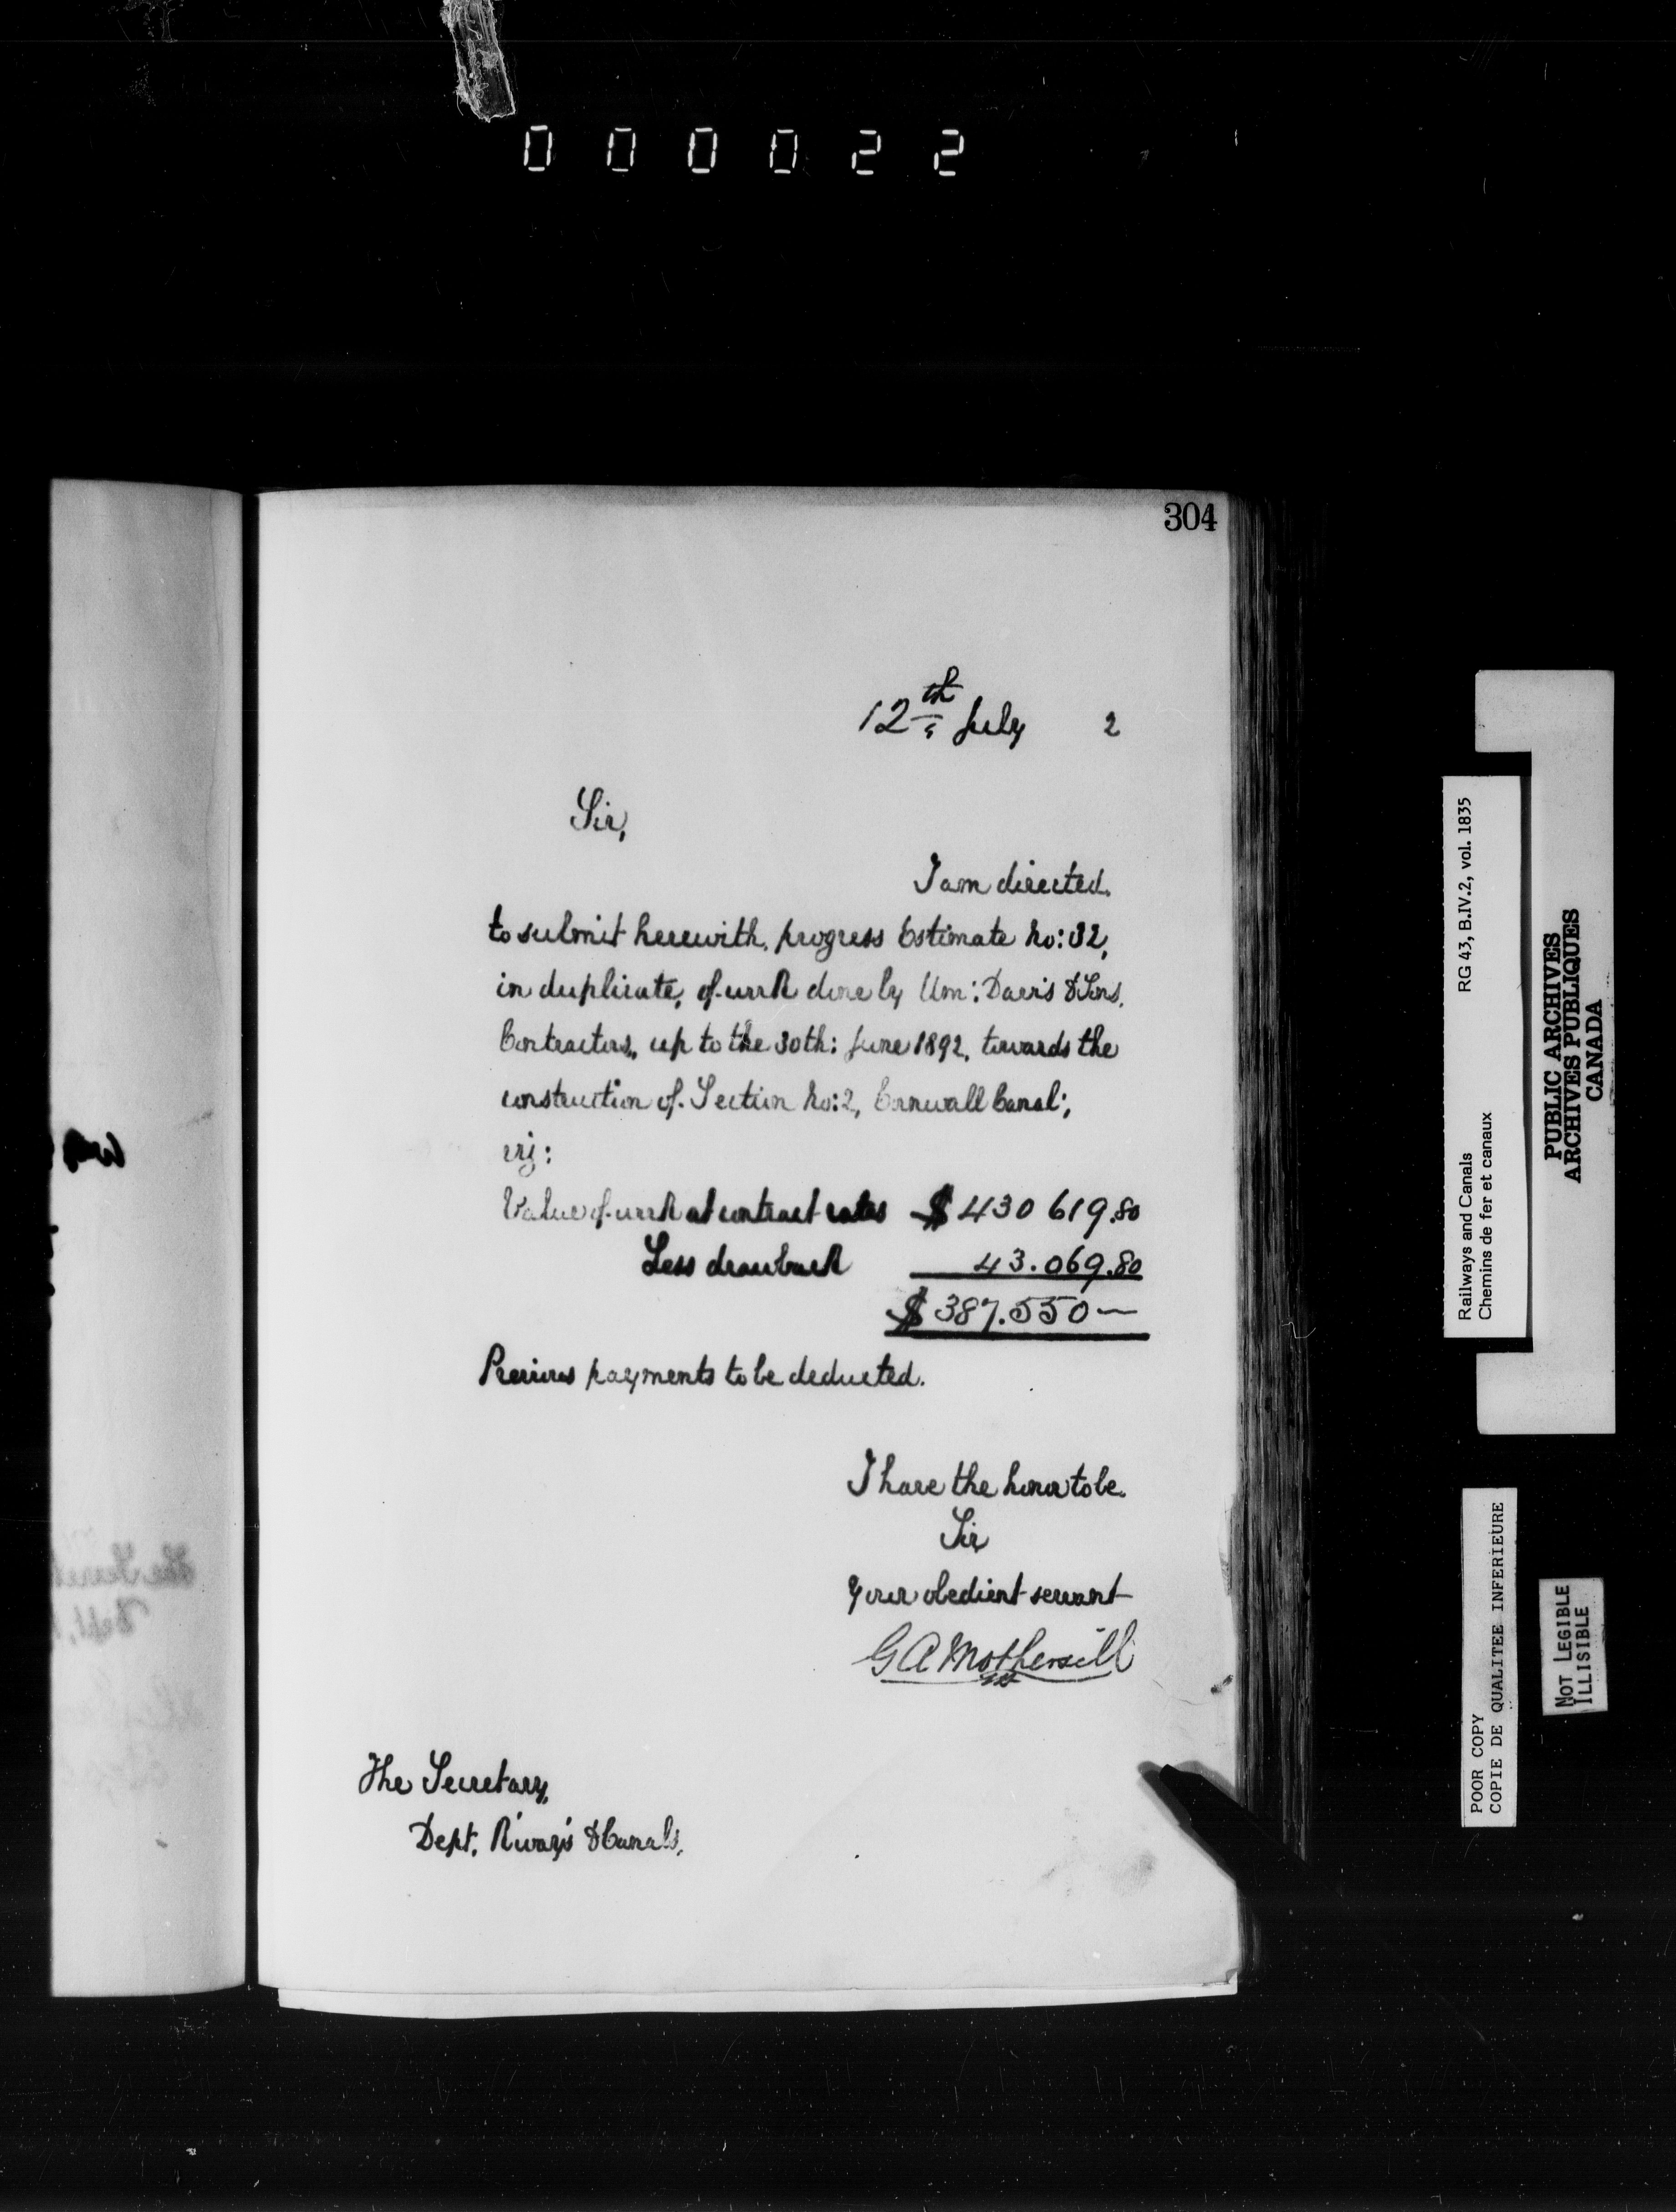 000022
304
12th July 2
Sir,
I am directed
to submit herewith, progress Estimate No: 32,
in duplicate, of work done by Wm: Davis & Sons,
Contractors, up to the 30th: June 1892, towards the
construction of Section No: 2, Cornwall Canal;
viz:
Value of work at contract rates $430 619.80
Less drawback 43.069.80
$387.550 —
Previous payments to be deducted.
I have the honor to be
Sir
Your obedient servant
G A Mothersill
The Secretary,
Dept. R'ways & Canals.
RG 43, B.IV.2, vol. 1835
Railways and Canals
Chemins de fer et canaux
PUBLIC ARCHIVES
ARCHIVES PUBLIQUES
CANADA
POOR COPY
COPIE DE QUALITEE INFERIEURE
NOT LEGIBLE
ILLISIBLE